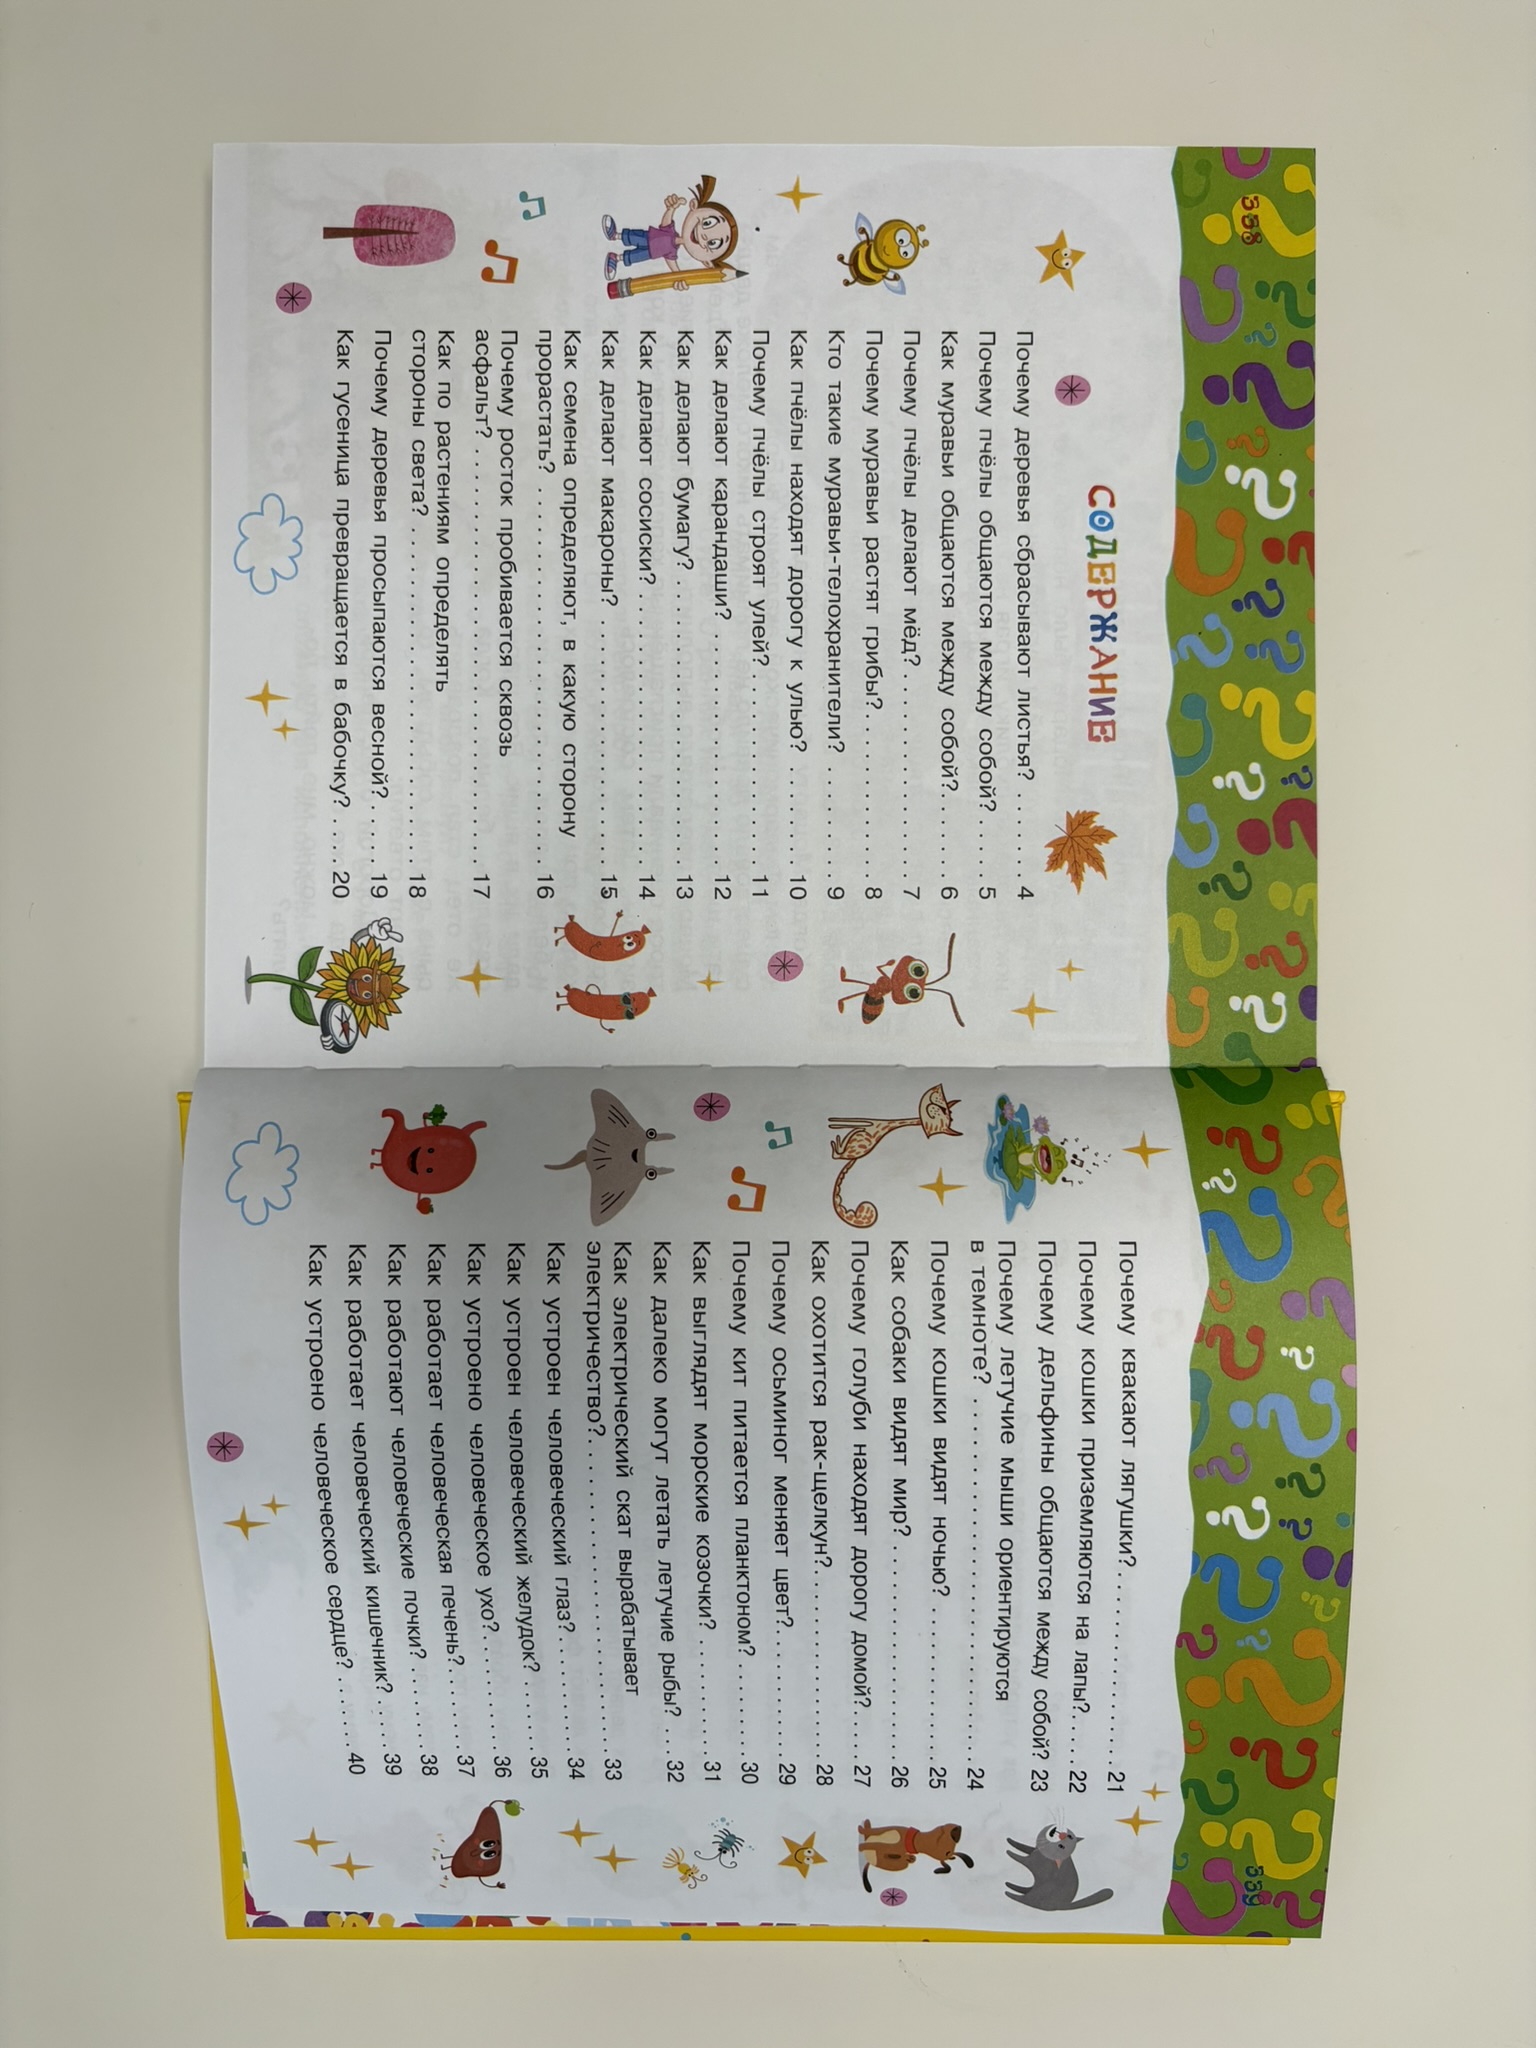 338
СОДЕРЖАНИЕ
Почему деревья сбрасывают листья? . . . . . . 4
Почему пчёлы общаются между собой? . . . . 5
Как муравьи общаются между собой?. . . . . . 6
Почему пчёлы делают мёд? . . . . . . . . . . . . 7
Почему муравьи растят грибы? . . . . . . . . . . 8
Кто такие муравьи-телохранители? . . . . . . . . 9
Как пчёлы находят дорогу к улью? . . . . . . . 10
Почему пчёлы строят улей? . . . . . . . . . . . . 11
Как делают карандаши? . . . . . . . . . . . . . . 12
Как делают бумагу? . . . . . . . . . . . . . . . . . 13
Как делают сосиски? . . . . . . . . . . . . . . . . 14
Как делают макароны? . . . . . . . . . . . . . . . 15
Как семена определяют, в какую сторону
прорастать? . . . . . . . . . . . . . . . . . . . . . . 16
Почему росток пробивается сквозь
асфальт? . . . . . . . . . . . . . . . . . . . . . . . . 17
Как по растениям определять
стороны света? . . . . . . . . . . . . . . . . . . . . 18
Почему деревья просыпаются весной? . . . . . 19
Как гусеница превращается в бабочку? . . . . 20
339
Почему квакают лягушки? . . . . . . . . . . . . . 21
Почему кошки приземляются на лапы? . . . . . 22
Почему дельфины общаются между собой? 23
Почему летучие мыши ориентируются
в темноте? . . . . . . . . . . . . . . . . . . . . . . . 24
Почему кошки видят ночью? . . . . . . . . . . . 25
Как собаки видят мир? . . . . . . . . . . . . . . . 26
Почему голуби находят дорогу домой? . . . . . 27
Как охотится рак-щелкун? . . . . . . . . . . . . . 28
Почему осьминог меняет цвет? . . . . . . . . . . 29
Почему кит питается планктоном? . . . . . . . . 30
Как выглядят морские козочки? . . . . . . . . . 31
Как далеко могут летать летучие рыбы? . . . 32
Как электрический скат вырабатывает
электричество? . . . . . . . . . . . . . . . . . . . . 33
Как устроен человеческий глаз? . . . . . . . . . 34
Как устроен человеческий желудок? . . . . . . 35
Как устроено человеческое ухо? . . . . . . . . . 36
Как работает человеческая печень? . . . . . . . 37
Как работают человеческие почки? . . . . . . . 38
Как работает человеческий кишечник? . . . . . 39
Как устроено человеческое сердце? . . . . . . 40